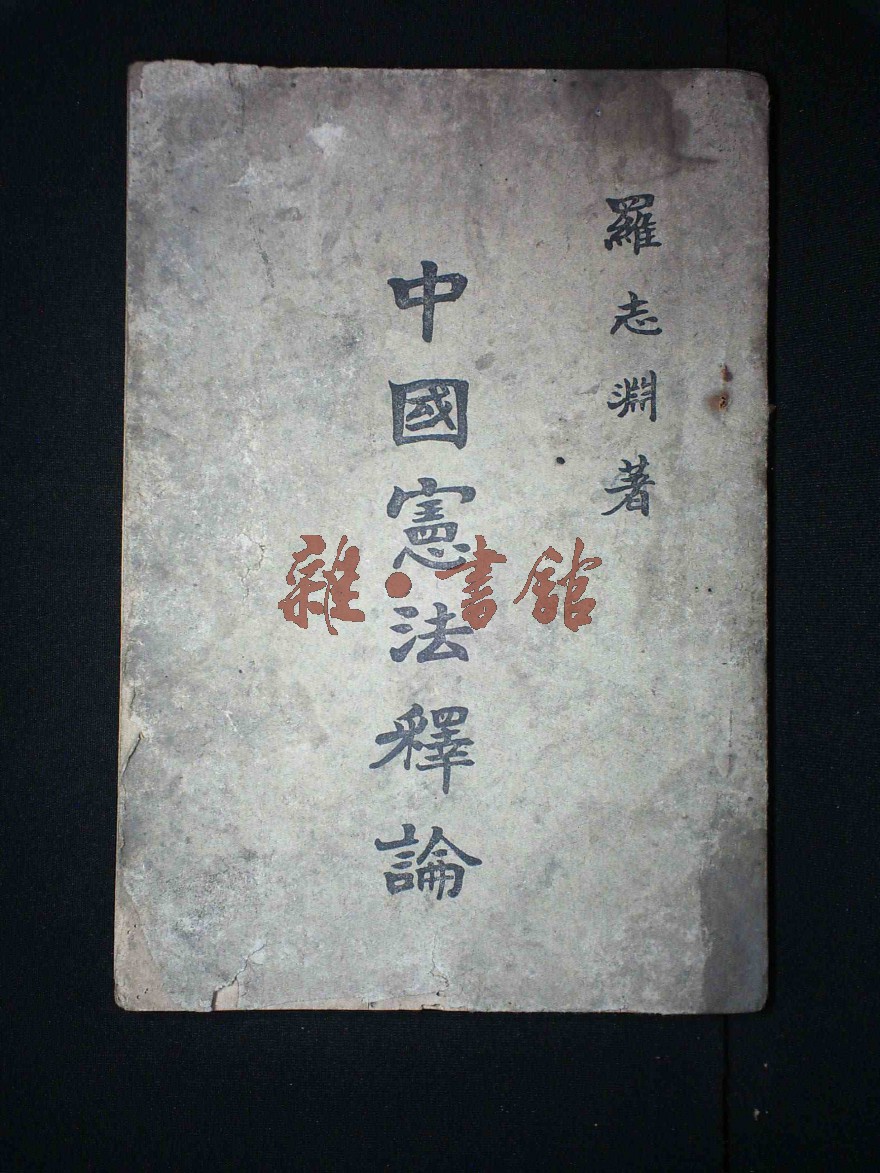 羅志淵著
中國憲法釋論
雜·書館